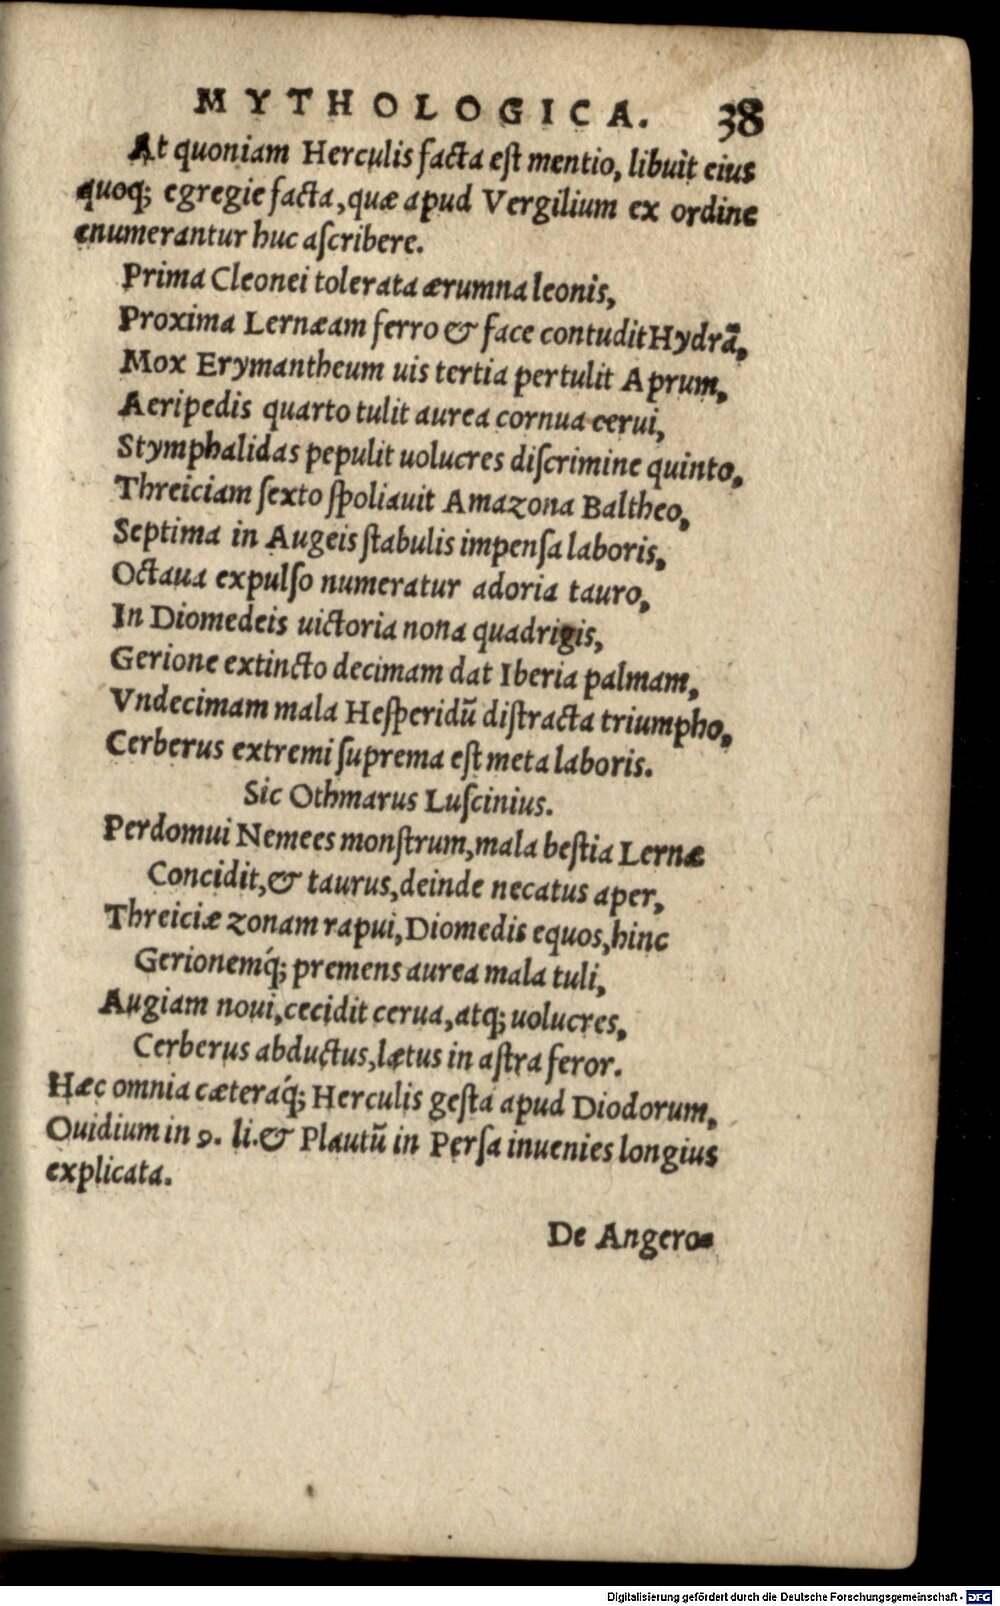 MYTHOLOGICA. 38
At quoniam Herculis facta eſt mentio, libuit eius
quoq; egregie facta, quæ apud Vergilium ex ordine
enumerantur huc aſcribere.
Prima Cleonei tolerata ærumna leonis,
Proxima Lernæam ferro & face contudit Hydrã,
Mox Erymantheum uis tertia pertulit Aprum,
Aeripedis quarto tulit aurea cornua cerui,
Stymphalidas pepulit uolucres diſcrimine quinto,
Threiciam ſexto ſpoliauit Amazona Baltheo,
Septima in Augeis ſtabulis impenſa laboris,
Octaua expulſo numeratur adoria tauro,
In Diomedeis uictoria nona quadrigis,
Gerione extincto decimam dat Iberia palmam,
Vndecimam mala Heſperidũ diſtracta triumpho,
Cerberus extremi ſuprema eſt meta laboris.
Sic Othmarus Luſcinius.
Perdomui Nemees monſtrum, mala beſtia Lernæ
Concidit, & taurus, deinde necatus aper,
Threiciæ zonam rapui, Diomedis equos, hinc
Gerionemq́; premens aurea mala tuli,
Augiam noui, cecidit cerua, atq; uolucres,
Cerberus abductus, lætus in aſtra feror.
Hæc omnia cæteraq́; Herculis geſta apud Diodorum,
Ouidium in 9. li. & Plautũ in Perſa inuenies longius
explicata.
De Angero-
Digitalisierung gefördert durch die Deutsche Forschungsgemeinschaft - DFG